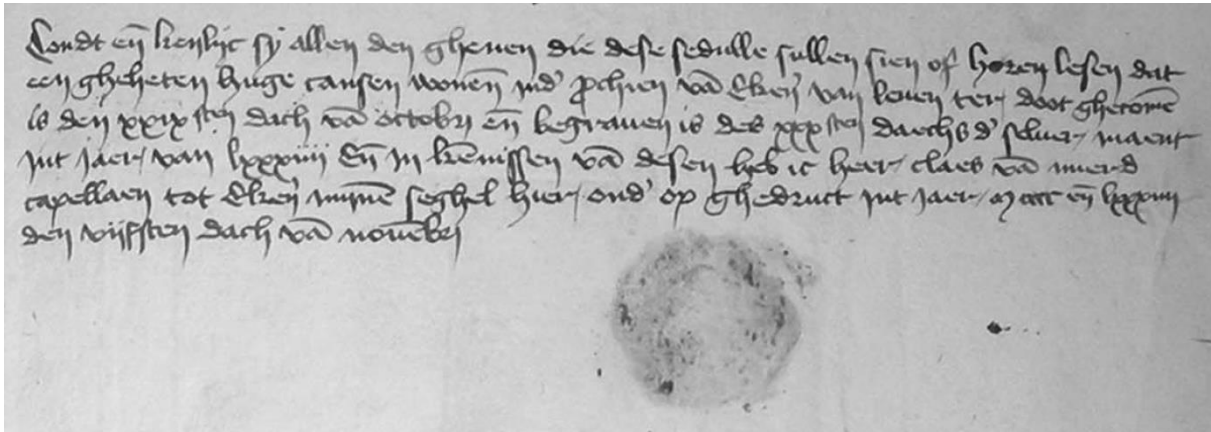 Condt en̄ kenlijc sy allen den ghenen die dese sedulle sullen sien of horen lesen dat
een gheheten huge cansen wonen̄ ind' ꝑchien vā Eken̄ van leuen ter doot ghecomē
is den xxix sten dach vā octobri en̄ begrauen is des xxxsten daechs d' seluer maent
int jaer van lxxxiiij En̄ in kēnissen vā desen heb ic heer claes vā
capellaen tot Eken̄ mynē seghel hier ond' op ghedruct int jaer m cccc en̄ lxxxiiij
den vijfsten dach vā nouēbri